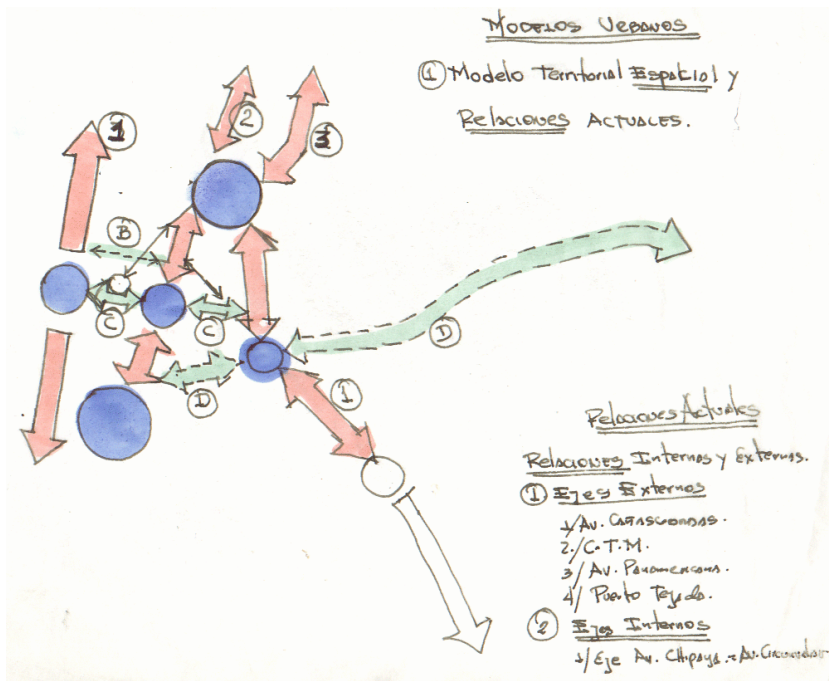 MODELOS URBANOS
1 Modelo Territorial Espacial y
Relaciones ACTUALES.
1
2
3
B
C
C
D
D
1
Relaciones Actuales
Relaciones Internas y Externas.
1 Ejes Externos
1/ Av.
2./ C.T.M.
3/ Av. Panamericana.
4/ Puerto Tejada.
2 Ejes Internos
1/ Eje Av. Chipaya - Av. Circunvalar